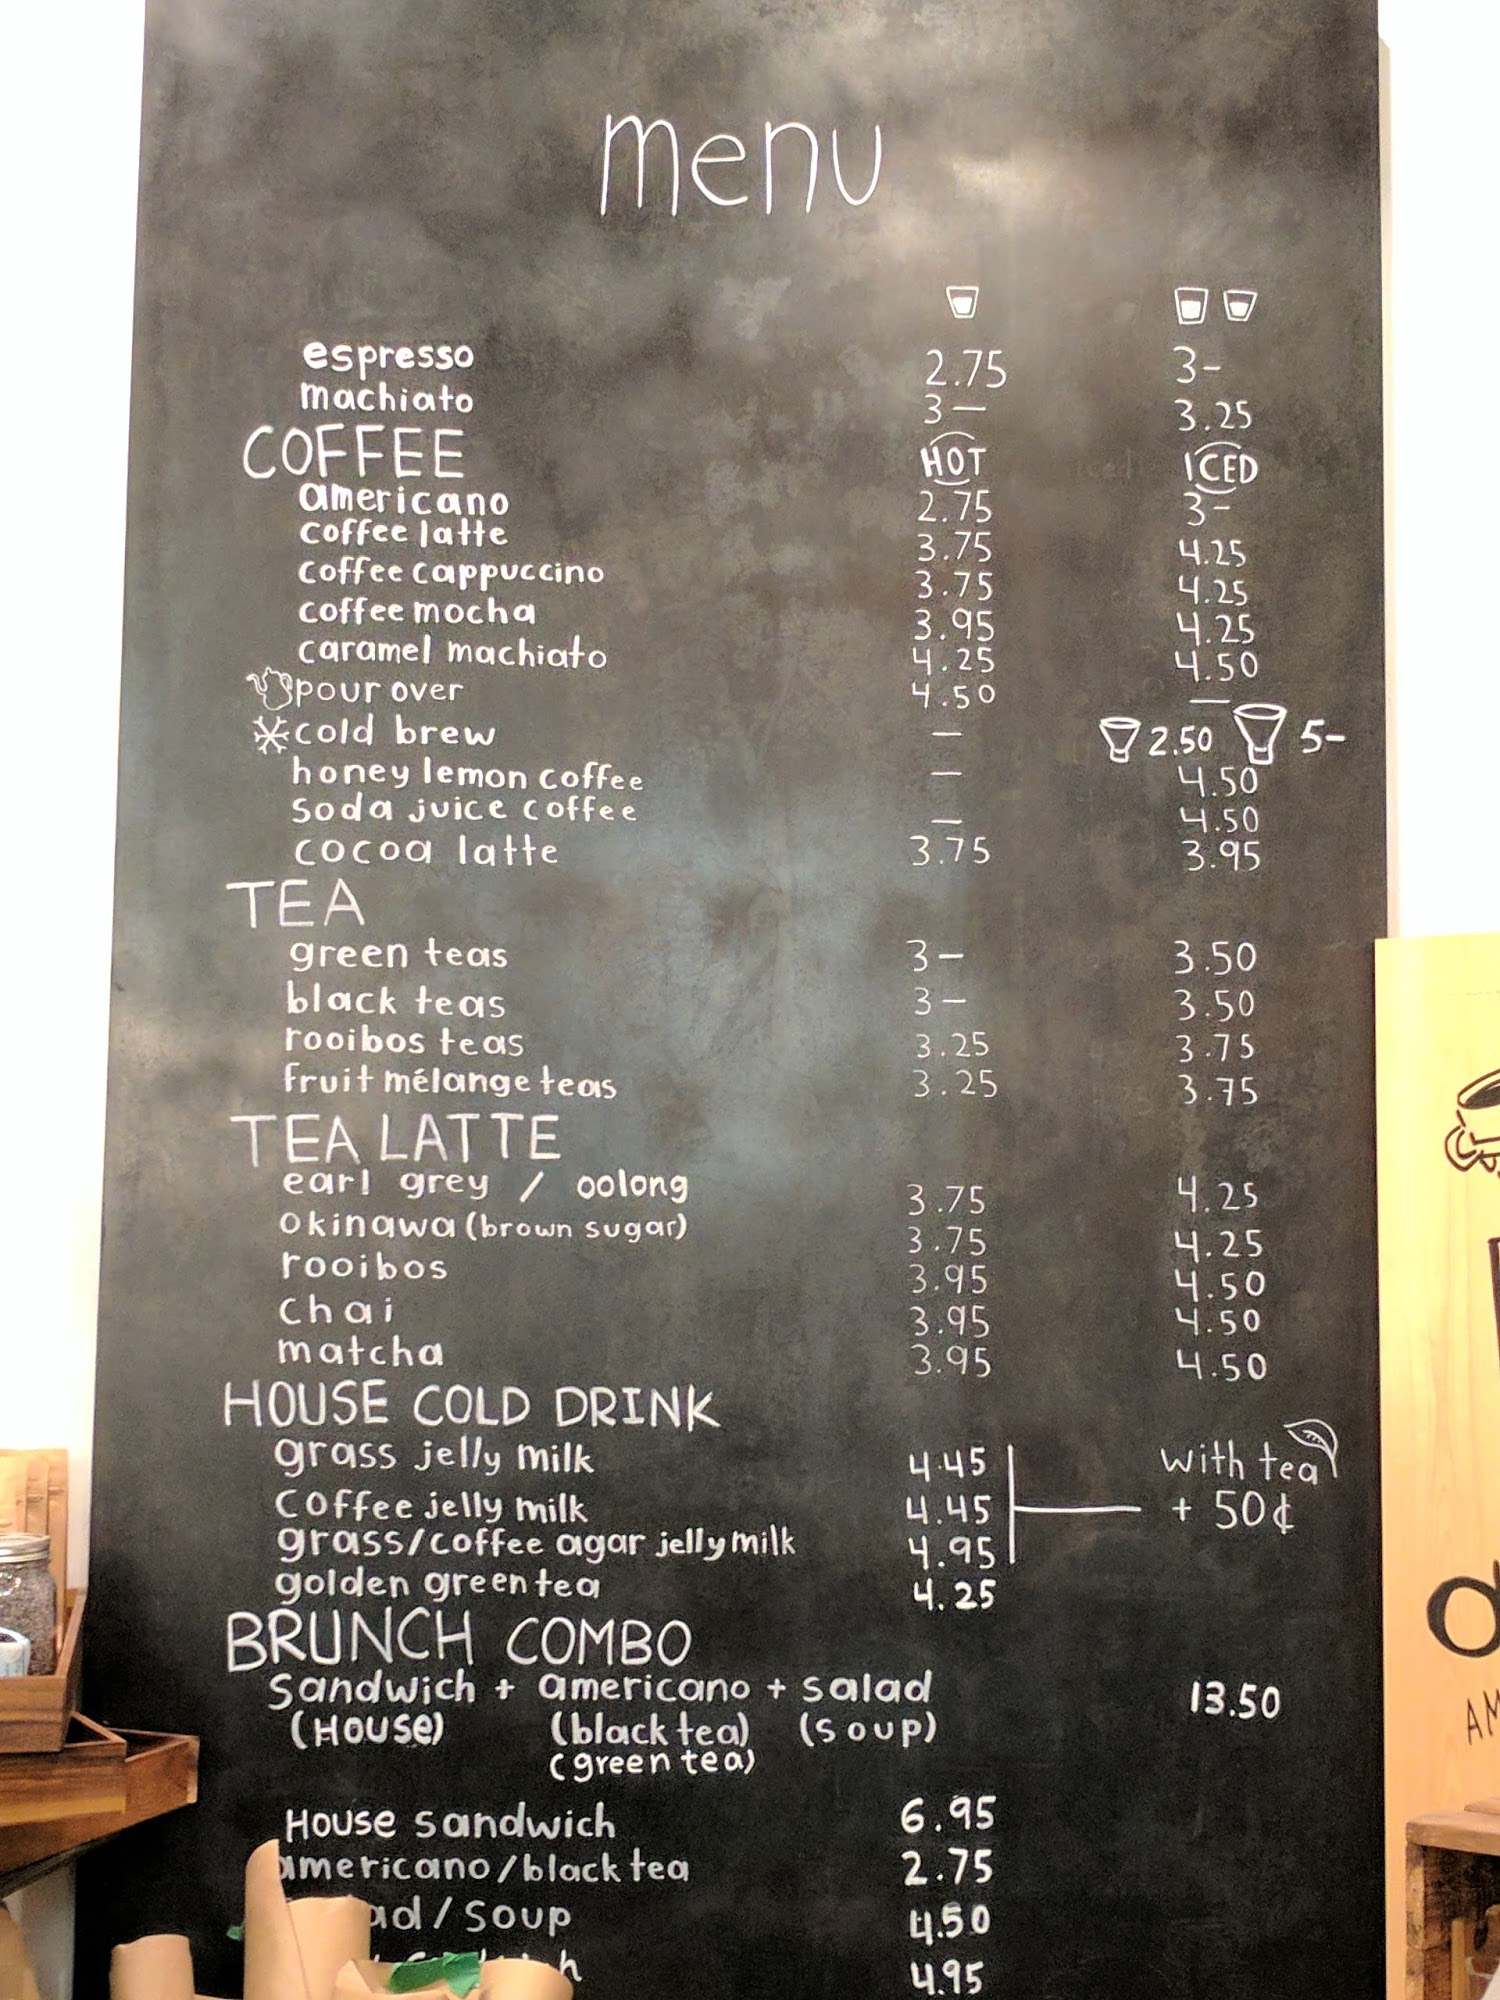 menu
espresso 2.75 3-
machiato 3— 3.25
COFFEE HOT ICED
americano 2.75 3-
coffee latte 3.75 4.25
coffee cappuccino 3.75 4.25
coffee mocha 3.95 4.25
caramel machiato 4.25 4.50
pour over 4.50 —
cold brew — 2.50 5-
honey lemon coffee — 4.50
soda juice coffee — 4.50
cocoa latte 3.75 3.95
TEA
green teas 3— 3.50
black teas 3— 3.50
rooibos teas 3.25 3.75
fruit mélange teas 3.25 3.75
TEA LATTE
earl grey / oolong 3.75 4.25
okinawa (brown sugar) 3.75 4.25
rooibos 3.95 4.50
chai 3.95 4.50
matcha 3.95 4.50
HOUSE COLD DRINK
grass jelly milk 4.45 with tea
coffee jelly milk 4.45 + 50¢
grass/coffee agar jelly milk 4.95
golden green tea 4.25
BRUNCH COMBO
sandwich + americano + salad 13.50
(House) (black tea) (soup)
(green tea)
House sandwich 6.95
americano/black tea 2.75
/soup 4.50
4.95